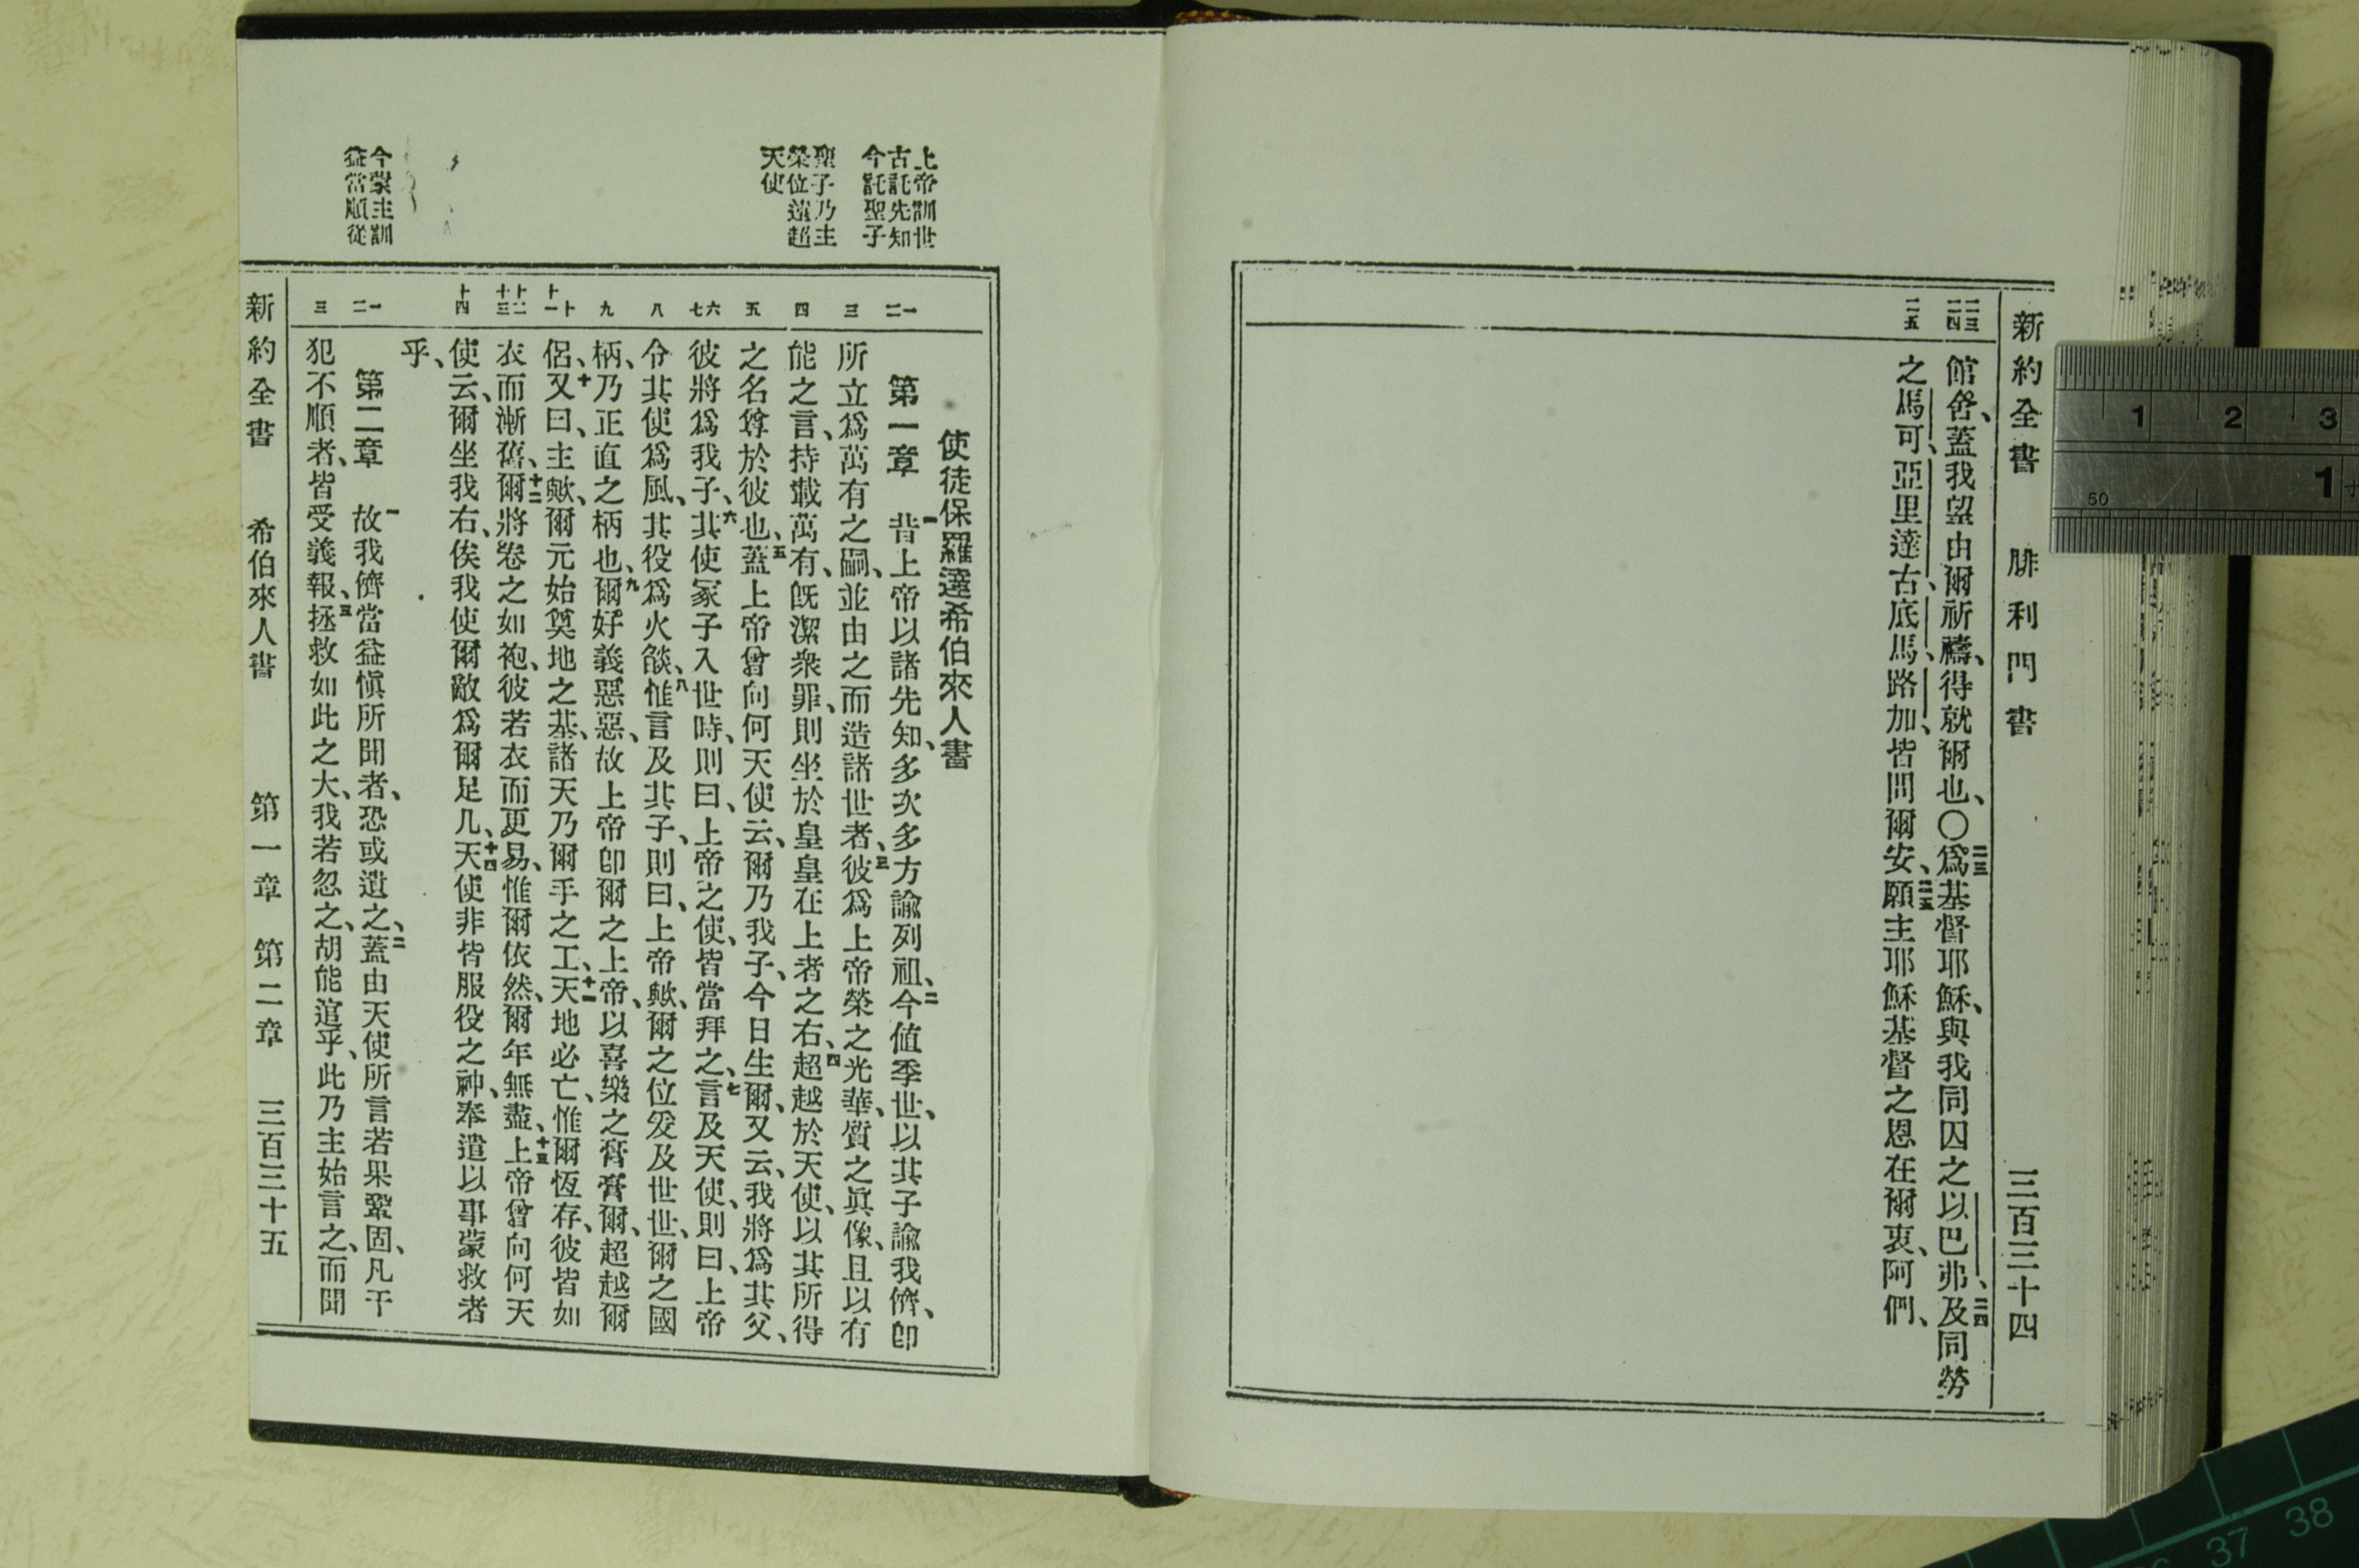 新約全書 腓利門書 三百三十四
二三 二四
二五
館舍、蓋我望由爾祈禱、得就爾也、〇二三爲基督耶穌、與我同囚之以巴弗、二四及同勞
之馬可、亞里達古、底馬、路加、皆問爾安、二五願主耶穌基督之恩在爾衷、阿們、
上帝訓世
古託先知
今託聖子
聖子乃主
榮位遠超
天使
今蒙主訓
益當順從
一 二
三
四
五
六 七
八
九
十 十一
十二 十三
十四
一 二
三
使徒保羅達希伯來人書
第一章 一昔上帝以諸先知、多次多方諭列祖、二今値季世、以其子諭我儕、卽
所立爲萬有之嗣、並由之而造諸世者、三彼爲上帝榮之光華、質之眞像、且以有
能之言、持載萬有、旣潔衆罪、則坐於皇皇在上者之右、四超越於天使、以其所得
之名尊於彼也、五蓋上帝曾向何天使云、爾乃我子、今日生爾、又云、我將爲其父、
彼將爲我子、六其使冢子入世時、則曰、上帝之使、皆當拜之、七言及天使、則曰、上帝
令其使爲風、其役爲火燄、八惟言及其子、則曰、上帝歟、爾之位爰及世世、爾之國
柄、乃正直之柄也、九爾好義惡惡、故上帝卽爾之上帝、以喜樂之膏膏爾、超越爾
侶、十又曰、主歟、爾元始奠地之基、諸天乃爾手之工、十一天地必亡、惟爾恆存、彼皆如
衣而漸舊、十二爾將卷之如袍、彼若衣而更易、惟爾依然、爾年無盡、十三上帝曾向何天
使云、爾坐我右、俟我使爾敵爲爾足几、十四天使非皆服役之神、奉遣以事蒙救者
乎、
第二章 一故我儕當益愼所聞者、恐或遺之、二蓋由天使所言若果鞏固、凡干
犯不順者、皆受義報、三拯救如此之大、我若忽之、胡能逭乎、此乃主始言之、而聞
新約全書 希伯來人書 第一章 第二章 三百三十五
1 2 3
50 1
37 38